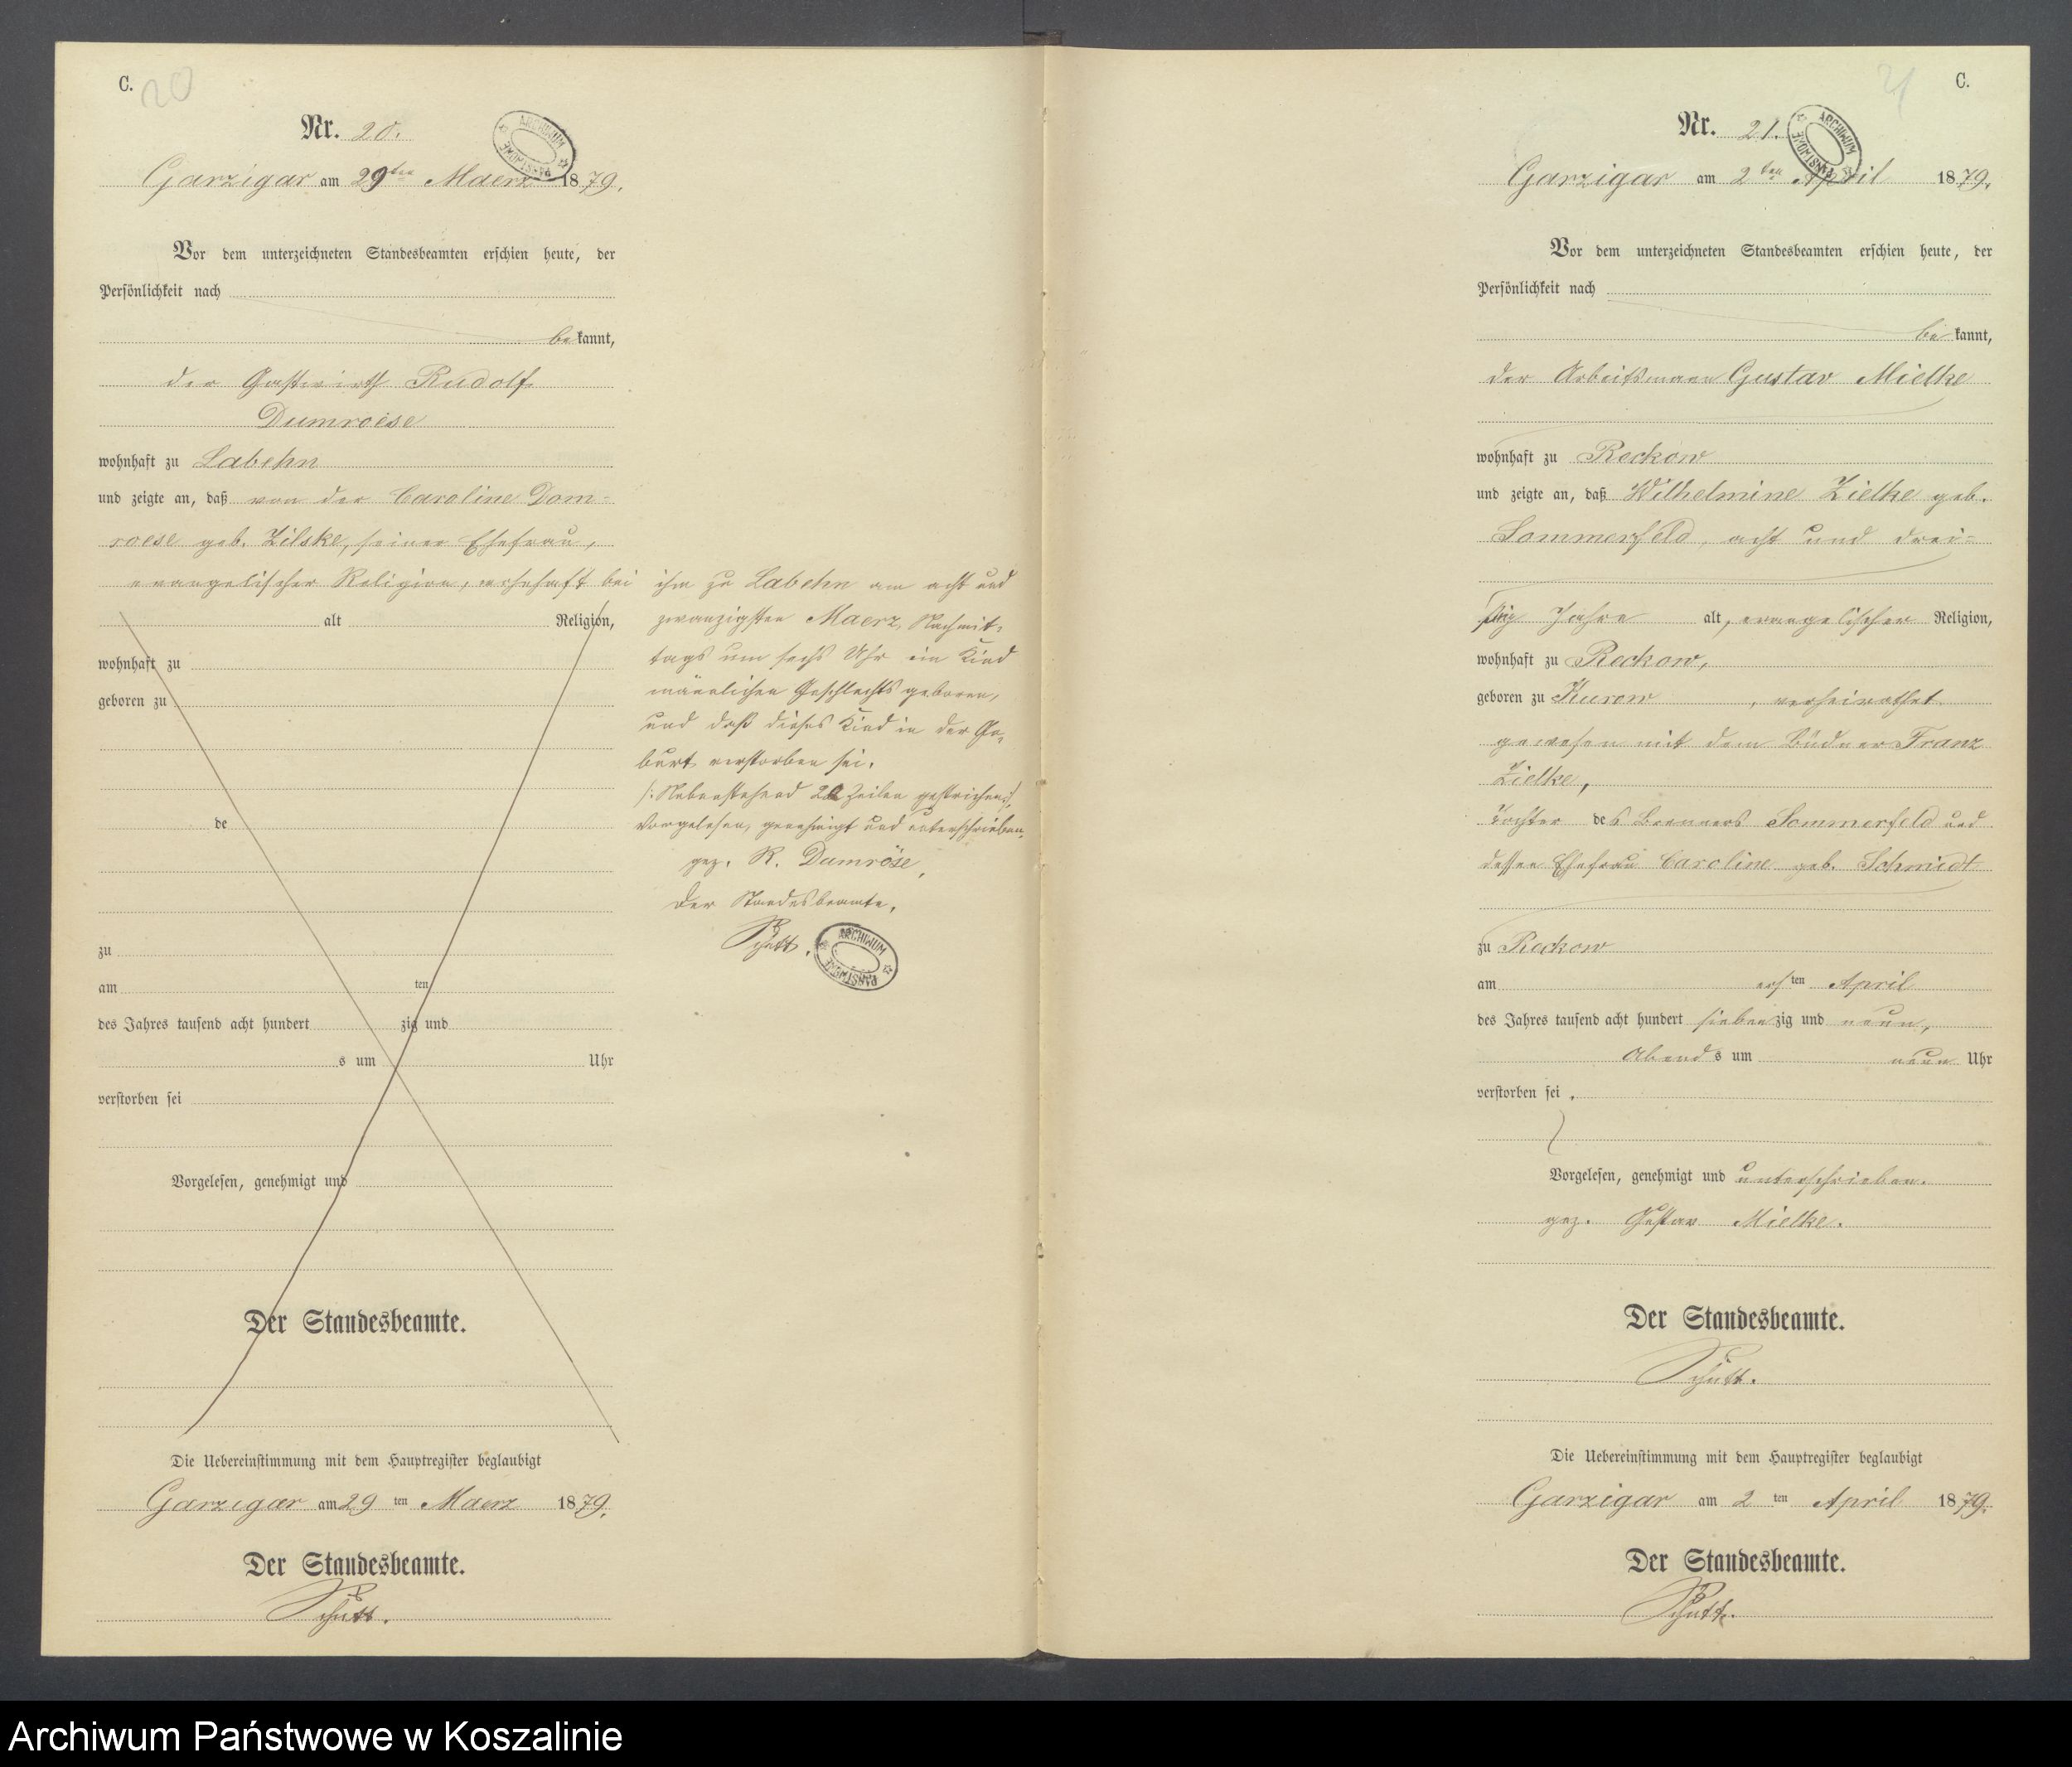 C.
20
Nr. 20.
ARCHIWUM PAŃSTWOWE
Garzigar am 29ten Maerz 1879.
Vor dem unterzeichneten Standesbeamten erschien heute, der
Persönlichkeit nach
bekannt,
der Gastwirth Rudolf
Dumroese
wohnhaft zu Labehn
und zeigte an, daß von der Caroline Dom-
roese geb. Zilske, seiner Ehefrau,
evangelischer Religion, wohnhaft bei
alt Religion,
wohnhaft zu
geboren zu
de
zu
am ten
des Jahres tausend acht hundert zig und
s um Uhr
verstorben sei
Vorgelesen, genehmigt und
Der Standesbeamte.
Die Uebereinstimmung mit dem Hauptregister beglaubigt
Garzigar am 29 ten Maerz 1879.
Der Standesbeamte.
Schütt.
ihm zu Labehn am acht und
zwanzigsten Maerz, Nachmit-
tags um sechs Uhr ein Kind
männlichen Geschlechts geboren,
und daß dieses Kind in der Ge-
burt verstorben sei.
/: Nebenstehend Zeilen gestrichen :/,
Vorgelesen, genehmigt und unterschrieben.
gez. R. Dumröse,
Der Standesbeamte,
Schütt.
ARCHIWUM PAŃSTWOWE
21
C.
Nr. 21.
ARCHIWUM PAŃSTWOWE
Garzigar am 2ten April 1879.
Vor dem unterzeichneten Standesbeamten erschien heute, der
Persönlichkeit nach
bekannt,
der Arbeitsmann Gustav Mielke
wohnhaft zu Reckow
und zeigte an, daß Wilhelmine Zielke geb.
Sommerfeld, acht und drei-
ßig Jahre alt, evangelischer Religion,
wohnhaft zu Reckow,
geboren zu Kurow, verheirathet
gewesen mit dem Büdner Franz
Zielke,
Tochter des Brenners Sommerfeld und
dessen Ehefrau Caroline geb. Schmidt
zu Reckow
am ersten April
des Jahres tausend acht hundert siebenzig und neun,
Abends um neun Uhr
verstorben sei.
Vorgelesen, genehmigt und unterschrieben.
gez. Gustav Mielke.
Der Standesbeamte.
Schütt.
Die Uebereinstimmung mit dem Hauptregister beglaubigt
Garzigar am 2 ten April 1879.
Der Standesbeamte.
Schütt.
Archiwum Państwowe w Koszalinie